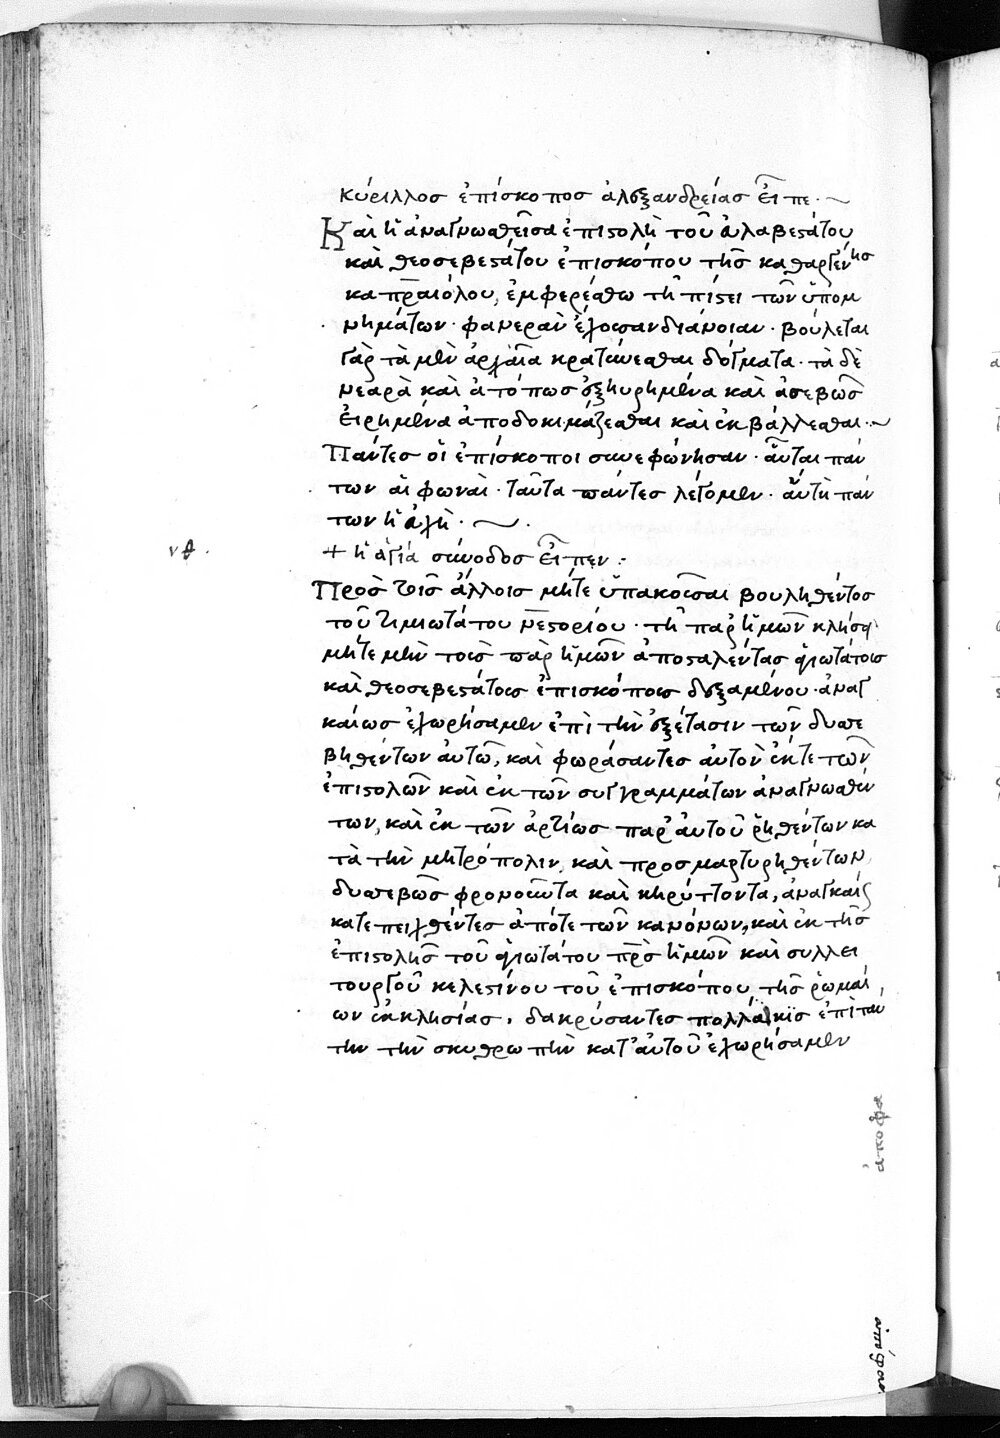 κύριλλος ἐπίσκοπος ἀλεξανδρείας εἶπε·
Καὶ ἡ ἀναγνωσθεῖσα ἐπιστολὴ τοῦ εὐλαβεστάτου
καὶ θεοσεβεστάτου ἐπισκόπου τῆς καθαργένης
καπραιόλου, ἐμφερέσθω τῆ πίστει τῶν ὑπομ
νημάτων· φανερὰν ἔχουσαν διάνοιαν· βούλεται
γὰρ τὰ μὲν ἀρχαῖα κρατύνεσθαι δόγματα· τὰ δὲ
νεαρὰ καὶ ἀτόπως ἐξηυρημένα καὶ ἀσεβῶς
εἰρημένα ἀποδοκιμάζεσθαι καὶ ἐκβάλλεσθαι·
Πάντες οἱ ἐπίσκοποι συνεφώνησαν· αὗται πάν
των αἱ φωναὶ· ταῦτα πάντες λέγομεν· αὕτη πάν
των ἡ εὐχὴ·
νθ·
+ ἡ ἁγία σύνοδος εἶπεν:
Πρὸς τοῖς ἄλλοις μήτε ὑπακοῦσαι βουληθέντος
τοῦ τιμιωτάτου νεστορίου· τῆ παρ ἡμῶν κλήσει
μήτε μὴν τοὺς παρ ἡμῶν ἀποσταλέντας ἁγιωτάτους
καὶ θεοσεβεστάτους ἐπισκόπους δεξαμένου· ἀναγ
καίως ἐχωρήσαμεν ἐπὶ τὴν ἐξέτασιν τῶν δυσσε
βηθέντων αὐτῶ, καὶ φωράσαντες αὐτὸν ἔκ τε τῶν
ἐπιστολῶν καὶ ἐκ τῶν συγγραμμάτων ἀναγνωσθέν
των, καὶ ἐκ τῶν ἀρτίως παρ' αὐτοῦ ῥηθέντων κα
τὰ τὴν μητρόπολιν, καὶ προσμαρτυρηθέντων,
δυσσεβῶς φρονοῦντα καὶ κηρύττοντα, ἀναγκαίως
κατεπειχθέντες ἀπό τε τῶν κανόνων, καὶ ἐκ τῆς
ἐπιστολῆς τοῦ ἁγιωτάτου πρς ἡμῶν καὶ συλλει
τουργοῦ κελεστίνου τοῦ ἐπισκόπου τῆς ῥωμαί
ων ἐκκλησίας, δακρύσαντες πολλάκις ἐπὶ ταύ
την τὴν σκυθρωπὴν κατ' αὐτοῦ ἐχωρήσαμεν
ἀποφα